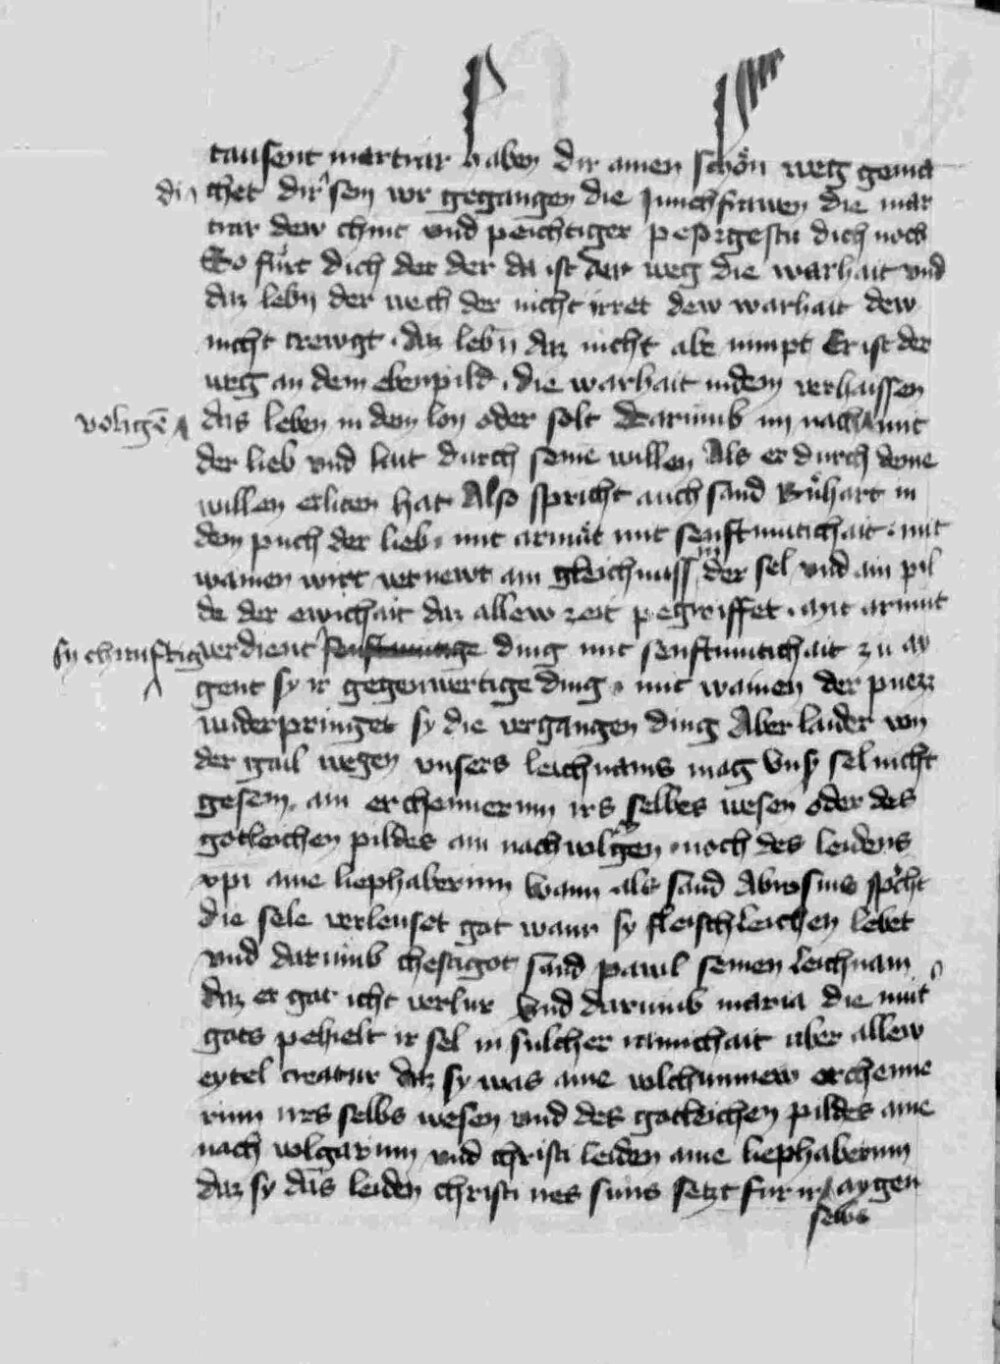 tausent martrar haben dir ainen schön weg gema
chet dir sein vor gegangen die Junchfrawen die mar
trar dew chint vnd peichtiger pesorgestu dich noch
So fürt dich der der da ist der weg die warhait vnd
daz lebn der wech der nicht irret dew warhait dew
nicht trewgt · daz lebn daz nicht abe nimpt Er ist der
weg an dem ebenpild · die warhait in dem verhaissen
volgē das leben in dem lon oder solt Darumb im nach mit
der lieb vnd leid durch seine willen Als er durch deine
willen erliten hat Also spricht auch sand Bernhart in
dem puch der lieb · mit armüt mit senftmutichait · mit
wainen wirt vernewt ain gleichnuss in der sel vnd ain pil
de der ewichait daz allew zeit pegriffet · mit armut
sy chunftig verdient senftmutige ding mit senftmutichait zu ay
gent sy ir gegenwertige ding · mit wainen der puezz
widerpringet sy die vergangen ding Aber laider von
der gail wegen vnsers leichnams mag vnser sel nicht
gesein · ain erchennerinn irs selbes wesen oder des
gotleichen pildes ain nachvolgerin · noch des leidens
xpi aine liephaberinn Wann als sand Abrosius spricht
die sele verleuset got wann sy fleischleichen lebet
vnd darumb chestigot sand pawl seinen leichnam
daz er got icht verlur Vnd darumb maria die muter
gots pehielt ir sel in sulcher ainichait uber allew
eytel creatur daz sy was aine volchumnew erchenne
rinn irs selbs wesen vnd des gotleichen pildes aine
nach volgarinn vnd christi leiden aine liephaberinn
daz sy das leiden christi ires suns setzt fur ir aygen
sews